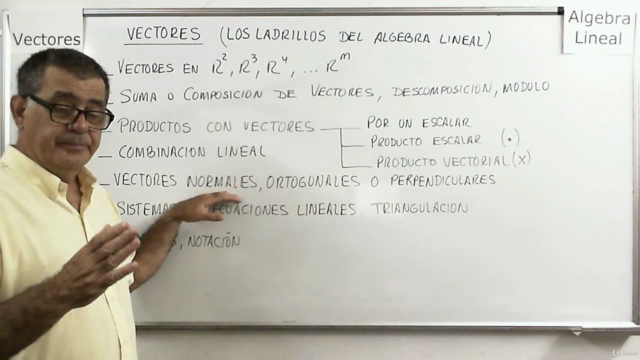 Vectores
Algebra
Lineal
VECTORES (LOS LADRILLOS DEL ALGEBRA LINEAL)
- VECTORES EN R², R³, R⁴, ... Rᵐ
- SUMA O COMPOSICION DE VECTORES, DESCOMPOSICION, MODULO
- PRODUCTOS CON VECTORES
POR UN ESCALAR
PRODUCTO ESCALAR (•)
PRODUCTO VECTORIAL (X)
- COMBINACION LINEAL
- VECTORES NORMALES, ORTOGONALES O PERPENDICULARES
LINEALES. TRIANGULACION
, NOTACIÓN